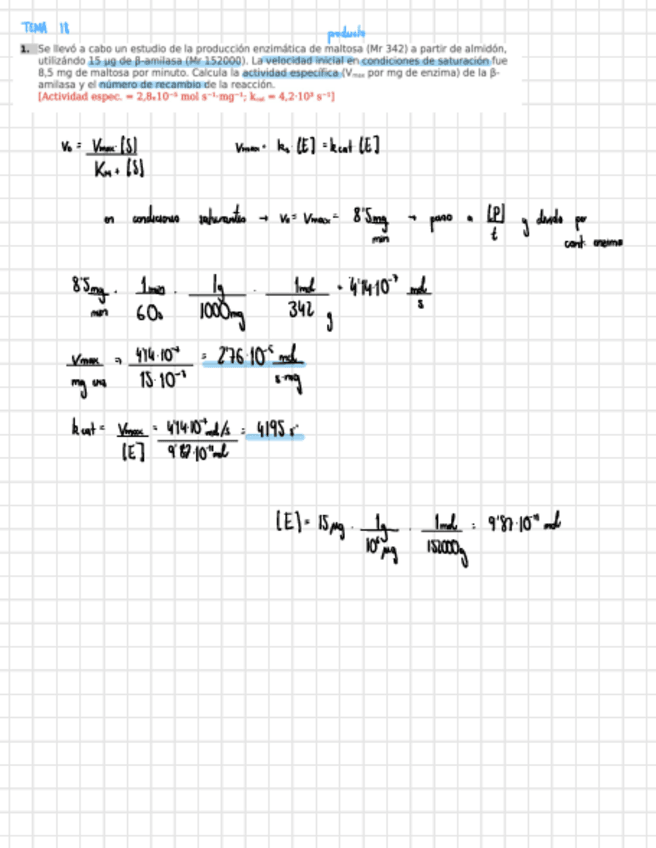 TEMA 18
producto
1. Se llevó a cabo un estudio de la producción enzimática de maltosa (Mr 342) a partir de almidón,
utilizándo 15 µg de β-amilasa (Mr 152000). La velocidad inicial en condiciones de saturación fue
8,5 mg de maltosa por minuto. Calcula la actividad específica (Vmax por mg de enzima) de la β-
amilasa y el número de recambio de la reacción.
[Actividad espec. = 2,8x10⁻⁵ mol s⁻¹·mg⁻¹; kcat = 4,2·10³ s⁻¹]
V₀ = Vmax·[S] / KM + [S]    Vmax = k₂ [E] = kcat [E]
en condiciones saturantes → V₀ = Vmax = 8'5 mg/min → paso a [P]/t y divido por cant. enzima
8'5 mg/min · 1 min/60s · 1g/1000mg · 1mol/342 g = 4'14·10⁻⁷ mol/s
Vmax/mg enz = 4'14·10⁻⁷ / 15·10⁻³ = 2'76·10⁻⁵ mol/s·mg
kcat = Vmax/[E] = 4'14·10⁻⁷ mol/s / 9'87·10⁻¹¹ mol = 4195 s⁻¹
[E] = 15 µg · 1g/10⁶ µg · 1mol/152000g = 9'87·10⁻¹¹ mol